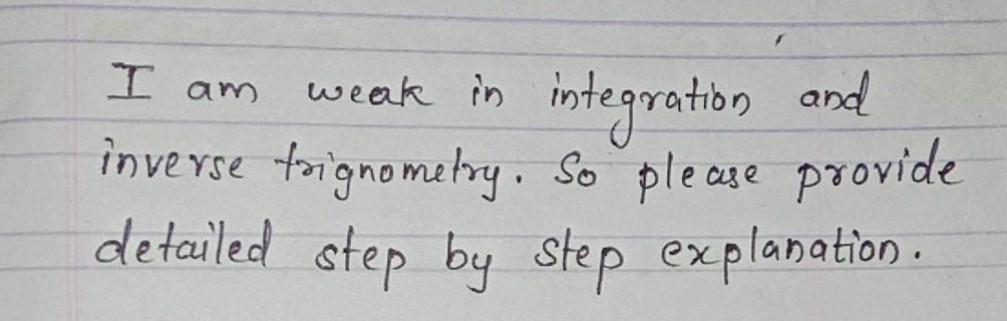 I am weak in integration and
inverse trignometry. So please provide
detailed step by step explanation.